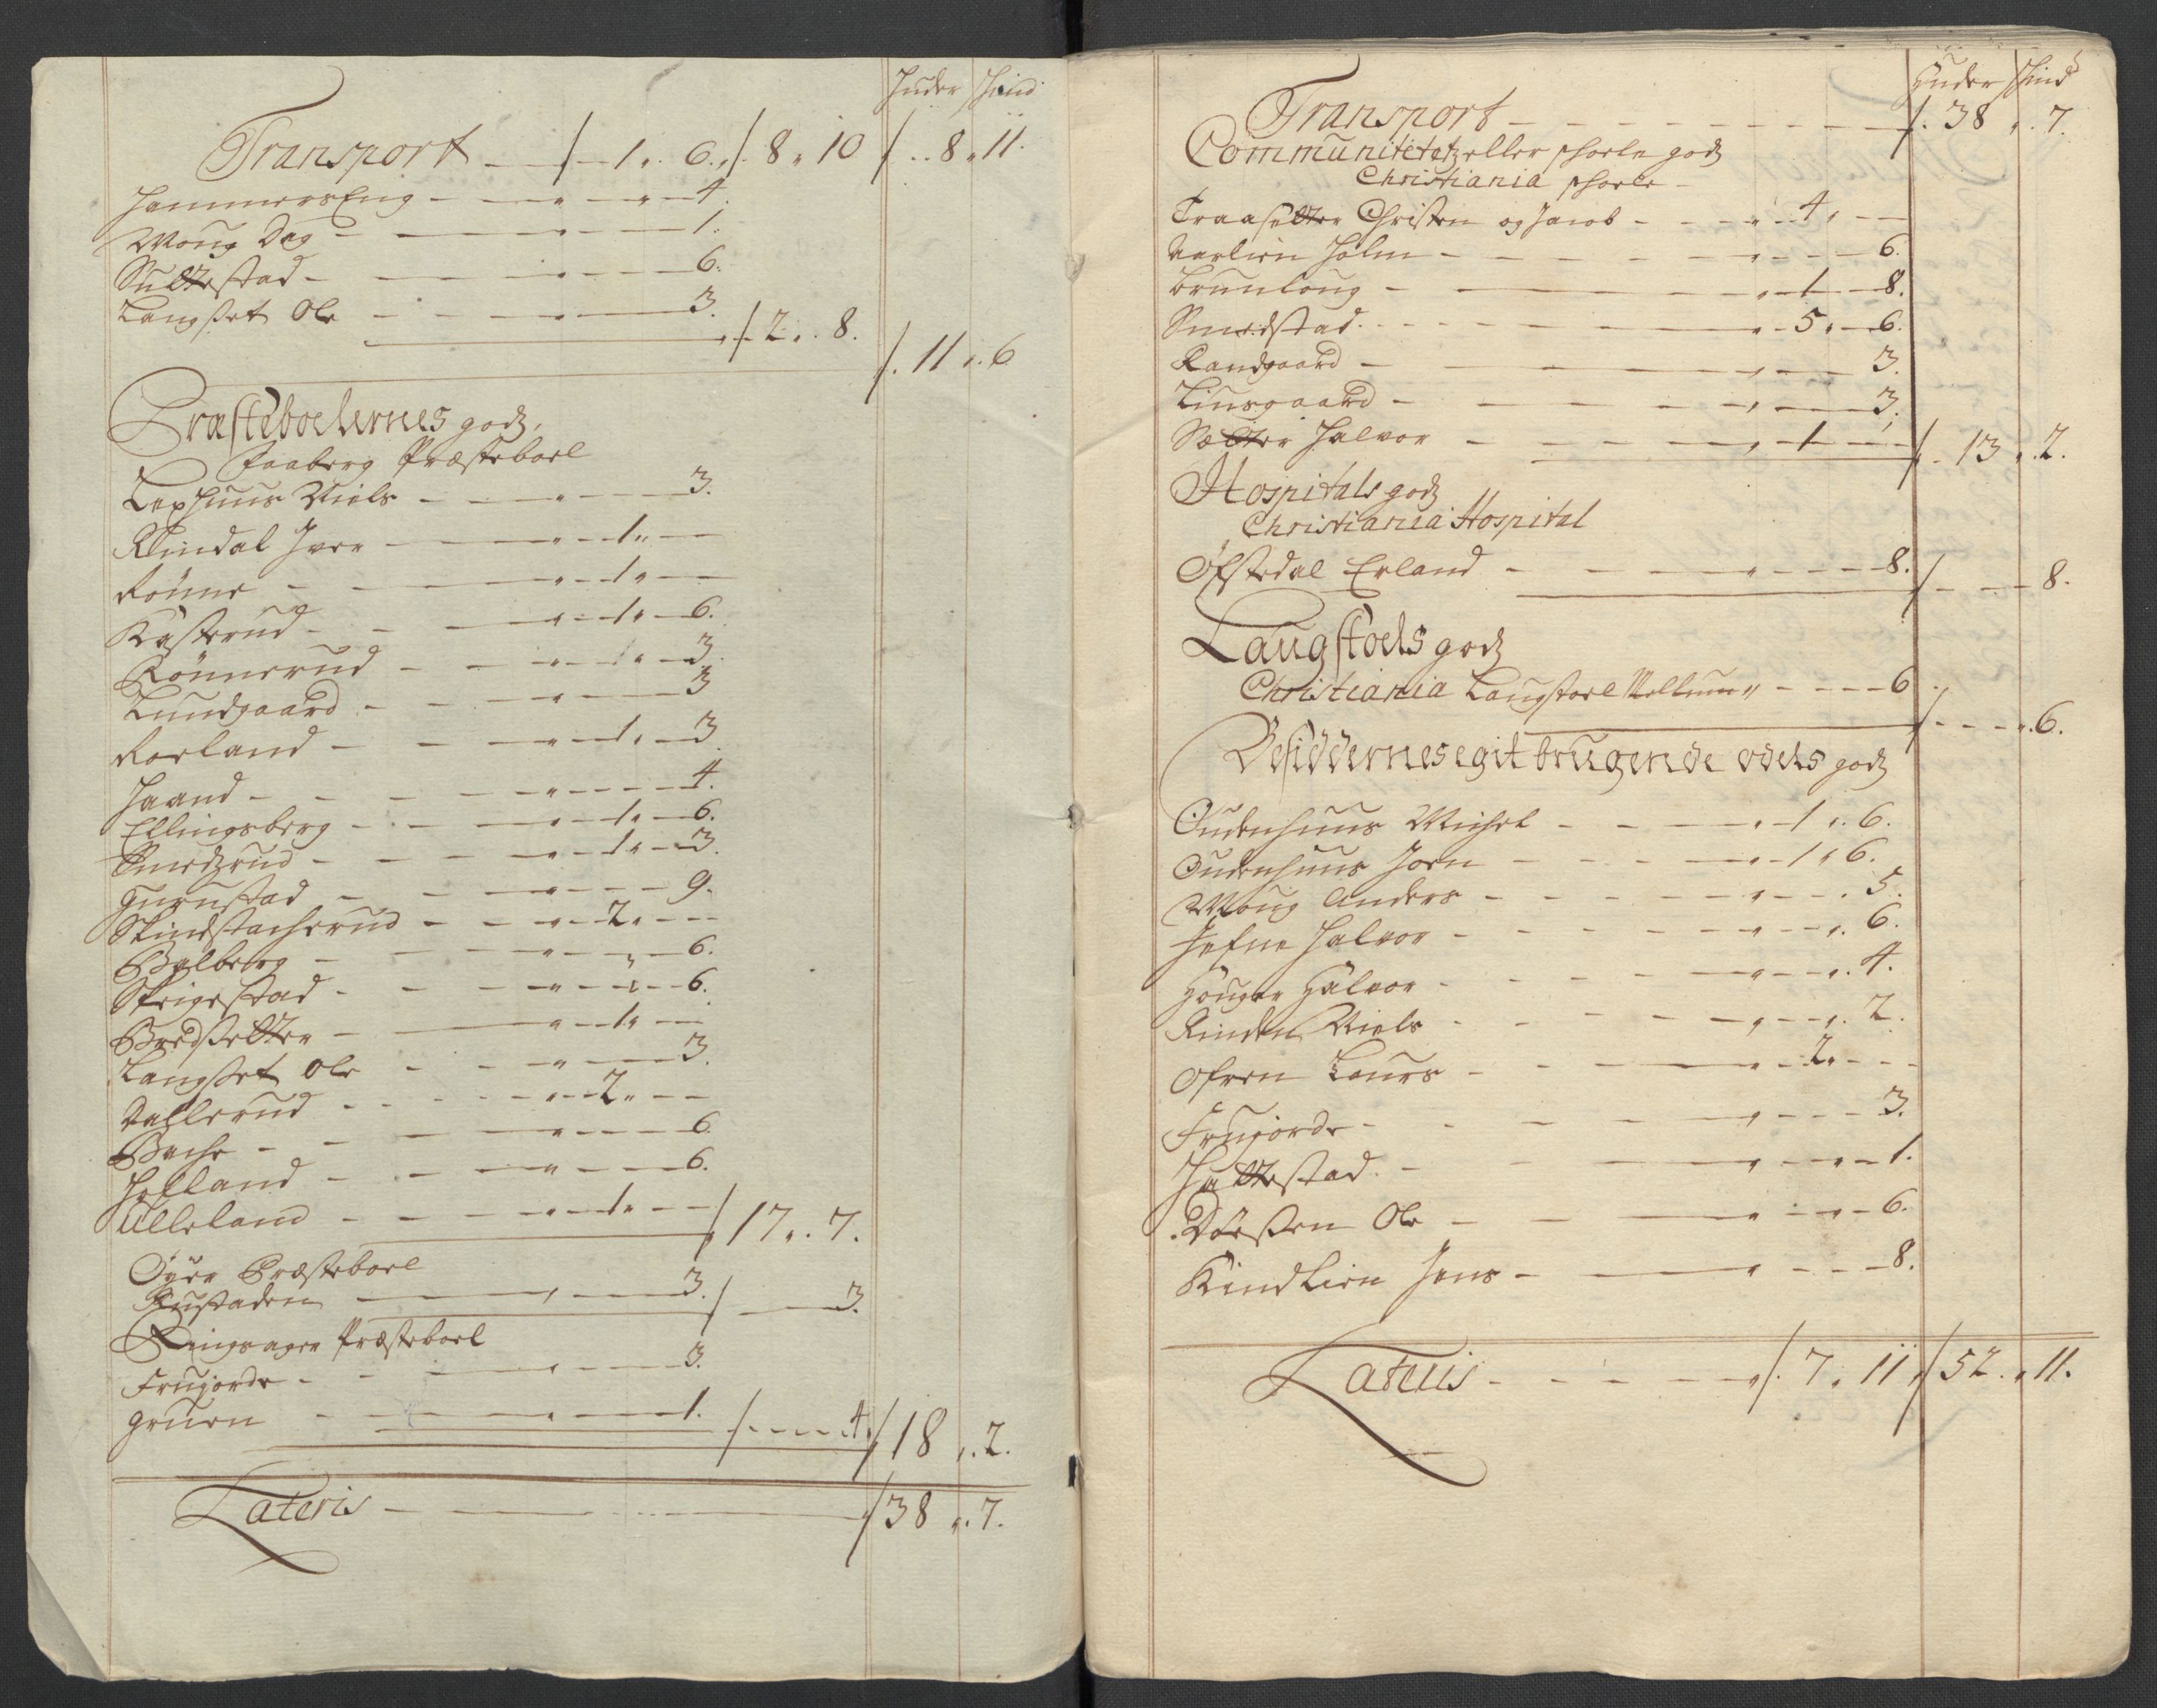 Huder Skind
Transport — 1 „ 6 „ 8 „ 10 8 „ 11.
HammersEng — 4.
Moug Dag — 1.
Sultestad — 6.
Langset Ole — 3.
2 „ 8.
11 „ 6
Præsteboelernes godz,
Faaberg Præsteboel
Lexhuus Niels — 3.
Rindal Iver — 1 „ —
Rønne — 1 „ —
Kasterud — 1 „ 6.
Rønnerud — 1 „ 3.
Lundgaard — 3
Rorland — 1 „ 3.
Haand — 4.
Ellingsberg — 1 „ 6.
Smedzrud — 1 „ 3.
Gurustad — 9.
Skindstacherud — 2 „ —
Balberg — 6.
Skigestad — 6.
Bredsetter — 1 „ —
Langset Ole — 3.
Dahlerud — 2 „ —
Bache — 6.
Hofland — 6.
Ulleland — 1 „ — 17 „ 7.
Øyer Præsteboel
Rustaden — 3. 3.
Ringsager Præsteboel
Frugorde — 3.
Gruen — 1. 4. 18 „ 2.
Lateris — 38 „ 7.
Huder Skind
Transport — 38 „ 7.
Communitetetz eller skoele godz
Christiania skoele —
Traasetter Christen og Jacob — 4 „ —
Aarlien Holm — 6.
Brunloug — 1 — 8.
Smedstad — 5 „ 6.
Randgaard — 3.
Linsgaard — 3.
Sætter Halvor — 1 — 13 „ 2.
Hospitals godz
Christiania Hospital
Øfstedal Erland — 8. 8.
Laugstoels godz
Christiania Laugstoel Mellum „ — 6
6.
Besiddernes egit brugende odels godz
Oudenhuus Michel — 1 „ 6.
Oudenhuus Joen — 1 „ 6.
Moug Anders — 5.
Jefne Halvor — 6.
Houger Halvor — 4.
Rinden Niels — 2.
Ofren Laurs — 2 „ —
Frugorde — 3.
Hattestad — 1.
Døesen Ole — 6.
Kindlien Jens — 8.
Lateris — 7 „ 11 52 „ 11.